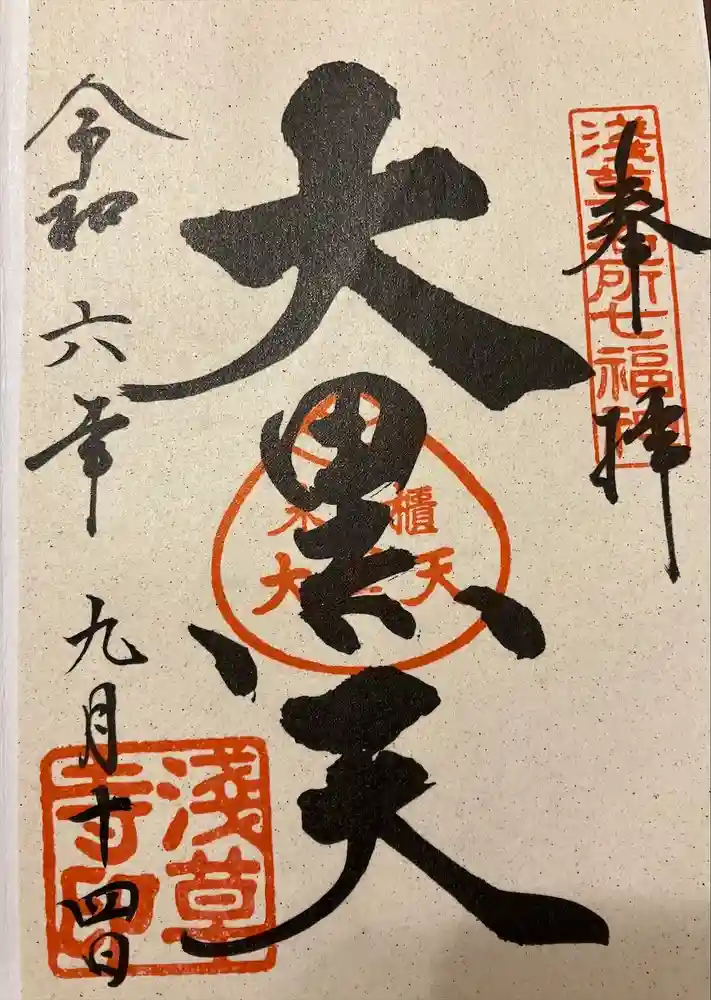 奉拝
淺草名所七福神
大黒天
米櫃
大黒天
令和六年九月十四日
淺草寺印